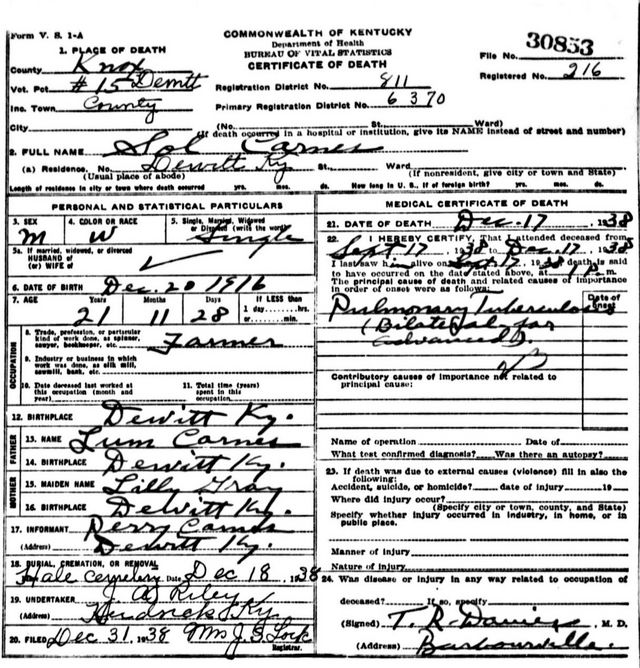 Form V. S. 1-A
COMMONWEALTH OF KENTUCKY
Department of Health
BUREAU OF VITAL STATISTICS
CERTIFICATE OF DEATH
File No. 30853
Registered No. 216
1. PLACE OF DEATH
County Knox
Vot. Pct # 15 Dewitt
Inc. Town County
City
Registration District No. 811
Primary Registration District No. 6370
(No. St. Ward)
(If death occurred in a hospital or institution, give its NAME instead of street and number)
2. FULL NAME Sol Carnes
(a) Residence, No. Dewitt Ky. St. Ward
(Usual place of abode) (If nonresident, give city or town and State)
Length of residence in city or town where death occurred yrs. mos. ds. How long in U. S., if of foreign birth? yrs. mos. ds.
PERSONAL AND STATISTICAL PARTICULARS
3. SEX M
4. COLOR OR RACE W
5. Single, Married, Widowed or Divorced (write the word) Single
5a. If married, widowed, or divorced
HUSBAND of
(or) WIFE of
6. DATE OF BIRTH Dec. 20 1916
7. AGE Years Months Days If LESS than
1 day hrs.
or min.
21 11 28
OCCUPATION
8. Trade, profession, or particular
kind of work done, as spinner,
sawyer, bookkeeper, etc. Farmer
9. Industry or business in which
work was done, as silk mill,
sawmill, bank, etc.
10. Date deceased last worked at
this occupation (month and
year)
11. Total time (years)
spent in this
occupation
12. BIRTHPLACE Dewitt Ky.
FATHER
13. NAME Lum Carnes
14. BIRTHPLACE Dewitt Ky.
MOTHER
15. MAIDEN NAME Lilly Gray
16. BIRTHPLACE Dewitt Ky.
17. INFORMANT Perry Carnes
(Address) Dewitt Ky.
18. BURIAL, CREMATION, OR REMOVAL
Hale Cemetery Date Dec 18, 1938
19. UNDERTAKER Riley
(Address) Ky.
20. FILED Dec 31 1938 Mrs J. S. Lock
Registrar.
MEDICAL CERTIFICATE OF DEATH
21. DATE OF DEATH Dec. 17, 1938
22. I HEREBY CERTIFY, That I attended deceased from
Sept 17, 1938 to Dec. 17, 1938
I last saw h alive on 17, 1938 death is said
to have occurred on the date stated above, at P.m.
The principal cause of death and related causes of importance
in order of onset were as follows:
Date of onset
Pulmonary Tuberculosis
(Bilateral far
advanced)
Contributory causes of importance not related to
principal cause:
Name of operation Date of
What test confirmed diagnosis? Was there an autopsy?
23. If death was due to external causes (violence) fill in also the
following:
Accident, suicide, or homicide? date of injury 19
Where did injury occur?
(Specify city or town, county, and State)
Specify whether injury occurred in industry, in home, or in
public place.
Manner of injury
Nature of injury
24. Was disease or injury in any way related to occupation of
deceased? If so, specify
(Signed) T. R. Davies, M. D.
(Address) Barbourville.